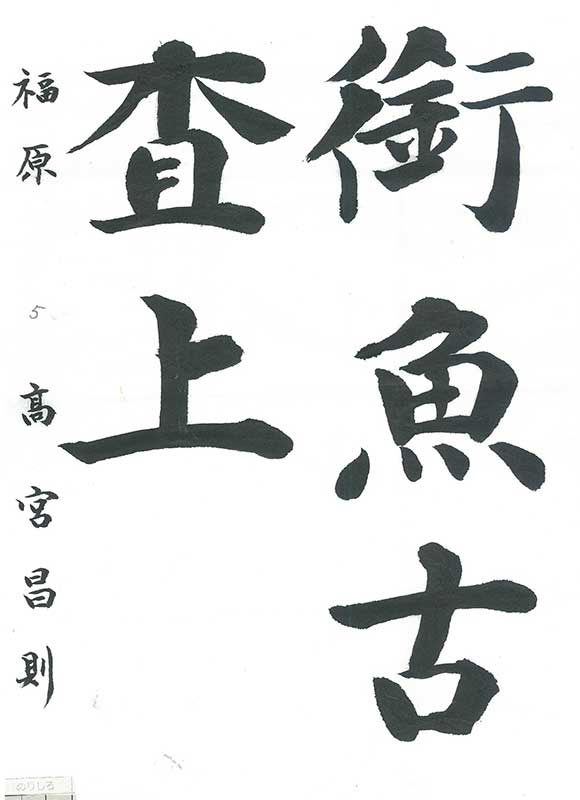 銜魚古
査上
福原 5 高宮昌則
のりしろ